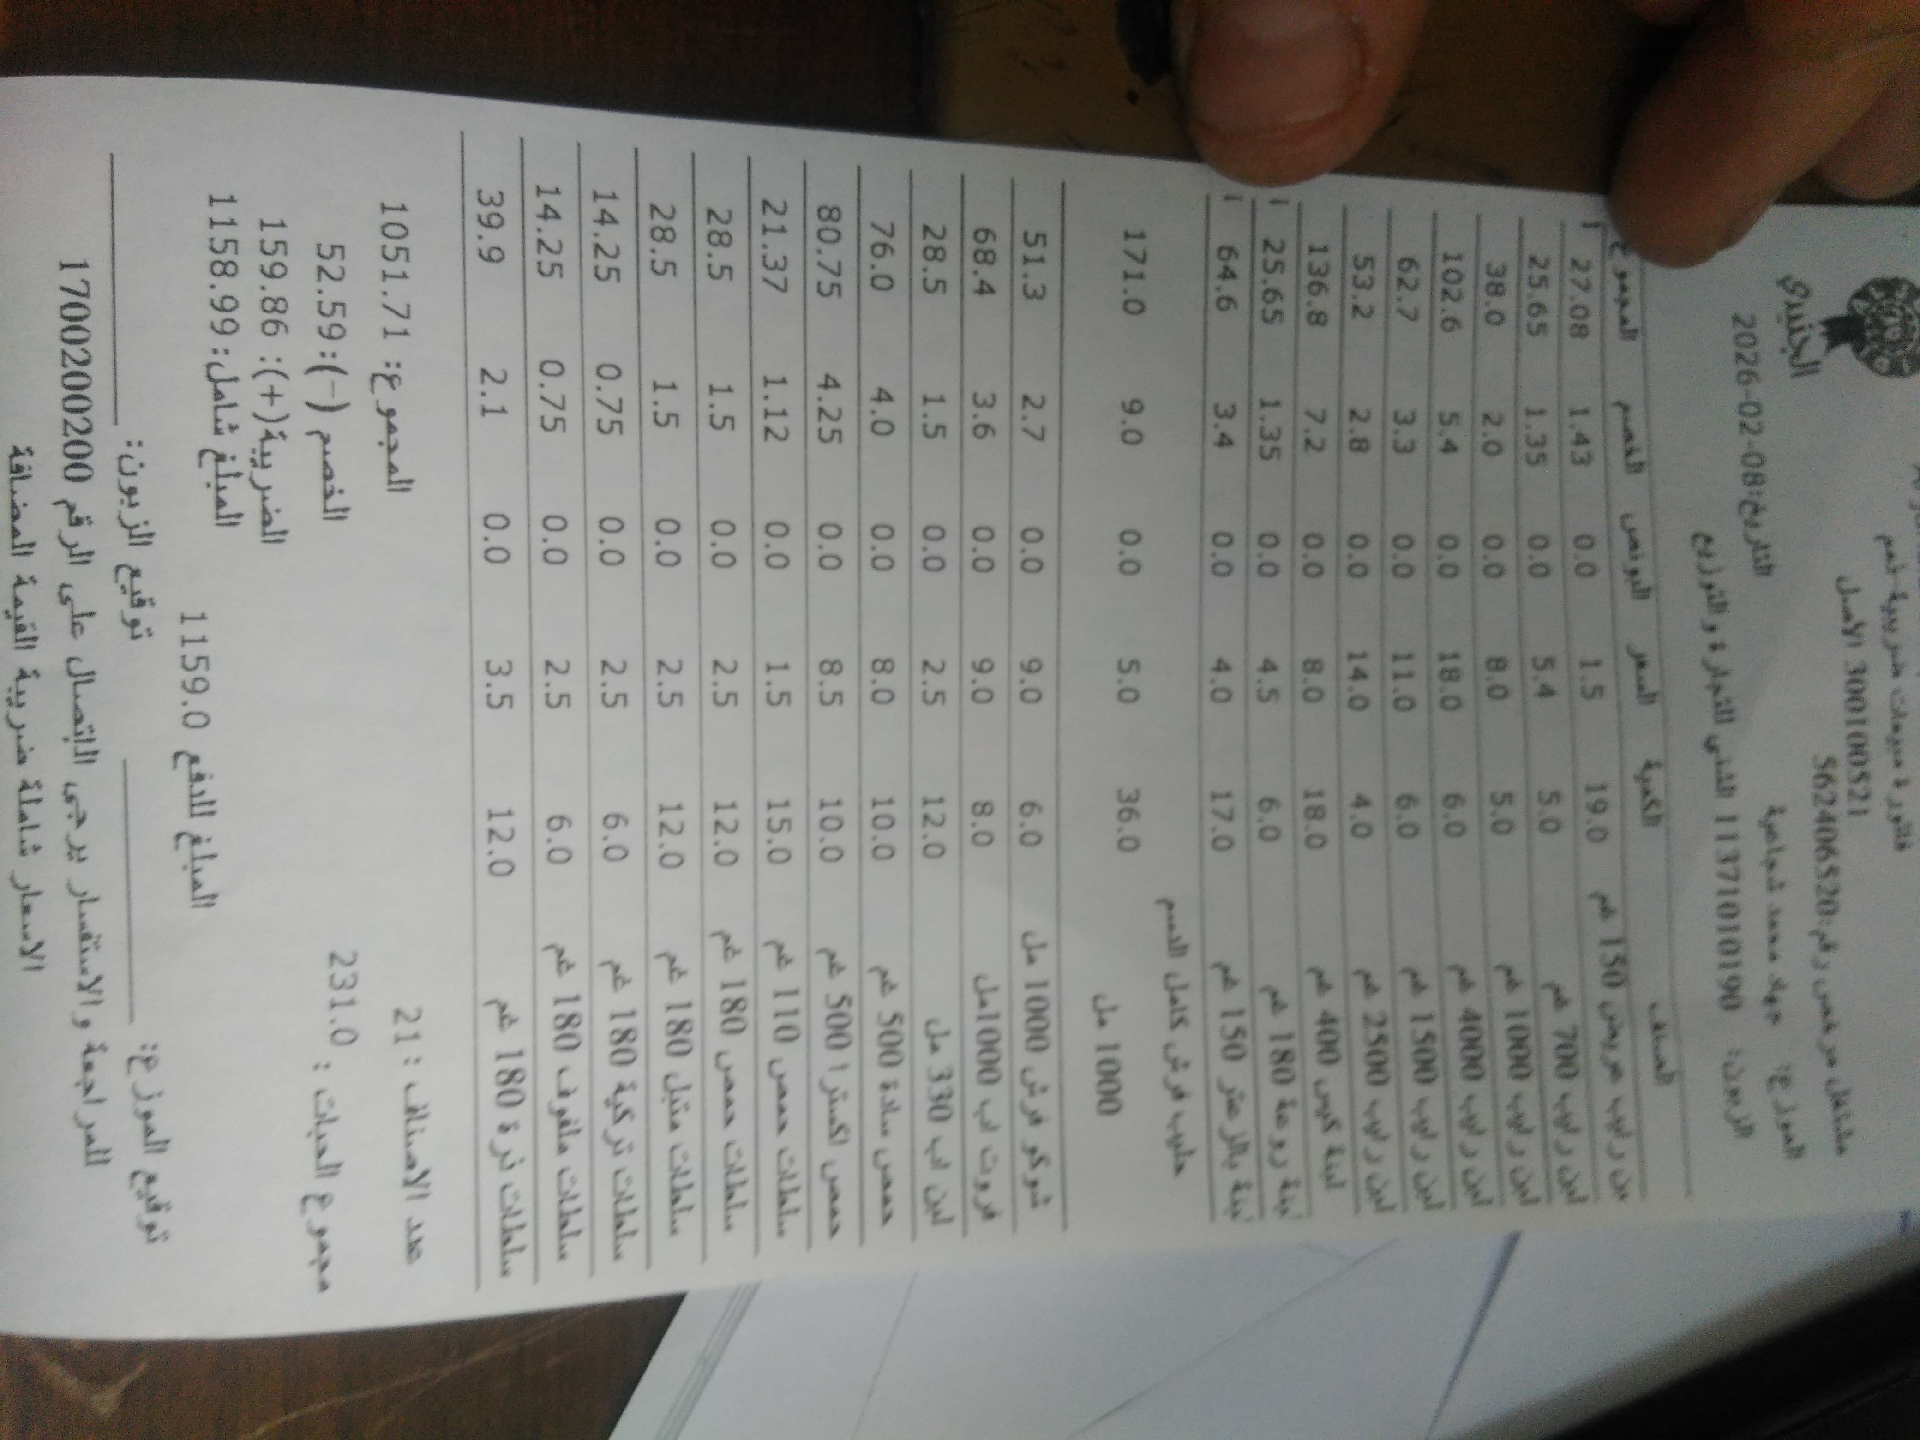 الجنيدي
فاتورة مبيعات ضريبية
3001100521 الاصل
مشتغل مرخص رقم:562406520
الموزع: جهاد محمد شجاعية
التاريخ:2026-02-08
الزبون: 1137101010190 للتجارة والتوزيع
الصنف الكمية السعر البونص الخصم المجموع
لبن رايب مريض 150 غم 19.0 1.5 0.0 1.43 27.08
لبن رايب 700 غم 5.0 5.4 0.0 1.35 25.65
لبن رايب 1000 غم 5.0 8.0 0.0 2.0 38.0
لبن رايب 4000 غم 6.0 18.0 0.0 5.4 102.6
لبن رايب 1500 غم 6.0 11.0 0.0 3.3 62.7
لبن رايب 2500 غم 4.0 14.0 0.0 2.8 53.2
لبنة كيس 400 غم 18.0 8.0 0.0 7.2 136.8
لبنة روعة 180 غم 6.0 4.5 0.0 1.35 25.65
لبنة بالزعتر 150 غم 17.0 4.0 0.0 3.4 64.6
حليب فرش كامل الدسم
1000 مل 36.0 5.0 0.0 9.0 171.0
شوكو فرش 1000 مل 6.0 9.0 0.0 2.7 51.3
فروت اب 1000مل 8.0 9.0 0.0 3.6 68.4
لبن اب 330 مل 12.0 2.5 0.0 1.5 28.5
حمص سادة 500 غم 10.0 8.0 0.0 4.0 76.0
حمص اكسترا 500 غم 10.0 8.5 0.0 4.25 80.75
سلطات حمص 110 غم 15.0 1.5 0.0 1.12 21.37
سلطات حمص 180 غم 12.0 2.5 0.0 1.5 28.5
سلطات متبل 180 غم 12.0 2.5 0.0 1.5 28.5
سلطات تركية 180 غم 6.0 2.5 0.0 0.75 14.25
سلطات ملفوف 180 غم 6.0 2.5 0.0 0.75 14.25
سلطات ذرة 180 غم 12.0 3.5 0.0 2.1 39.9
عدد الاصناف : 21 المجموع: 1051.71
مجموع الحبات : 231.0 الخصم (-): 52.59
الضريبة(+): 159.86
المبلغ شامل: 1158.99
المبلغ للدفع 1159.0
توقيع الموزع: توقيع الزبون:
للمراجعة والاستفسار يرجى الاتصال على الرقم 1700200200
الاسعار شاملة ضريبة القيمة المضافة